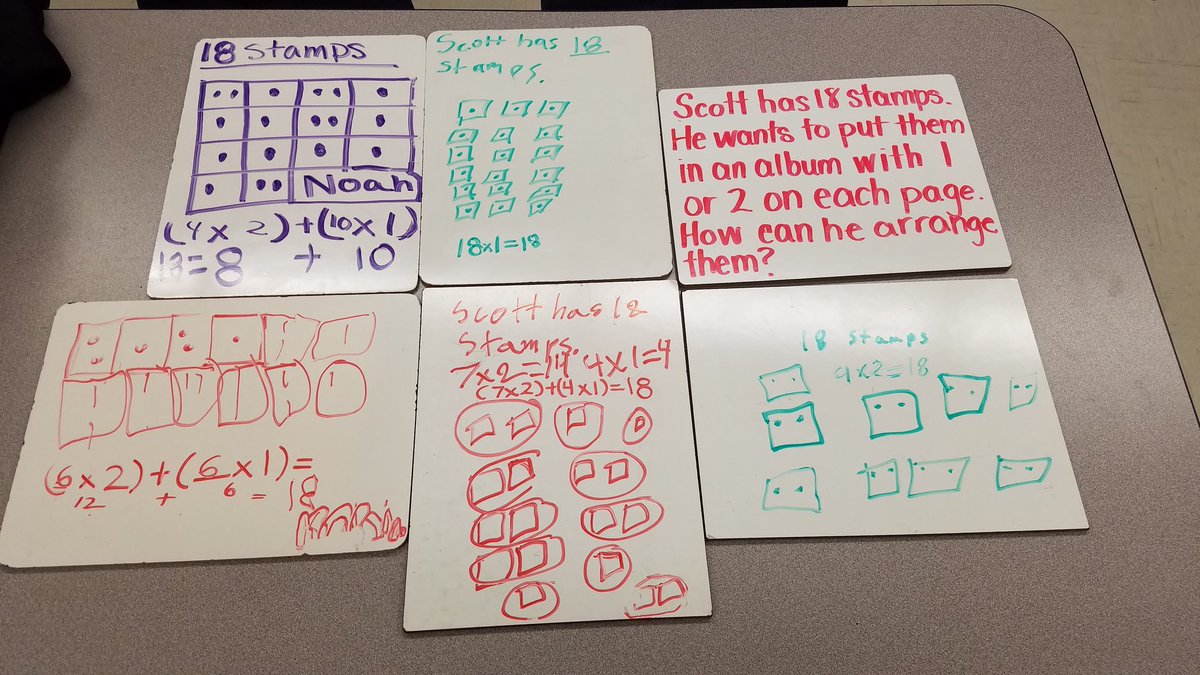 18 stamps
Noah
(4x 2)+(10x1)
18=8 + 10
Scott has 18
stamps.
18x1=18
Scott has 18 stamps.
He wants to put them
in an album with 1
or 2 on each page.
How can he arrange
them?
(6x2)+(6x1)=
12 + 6 = 18
Scott has 18
stamps.
7x2=14 4x1=4
(7x2)+(4x1)=18
18 stamps
9x2=18